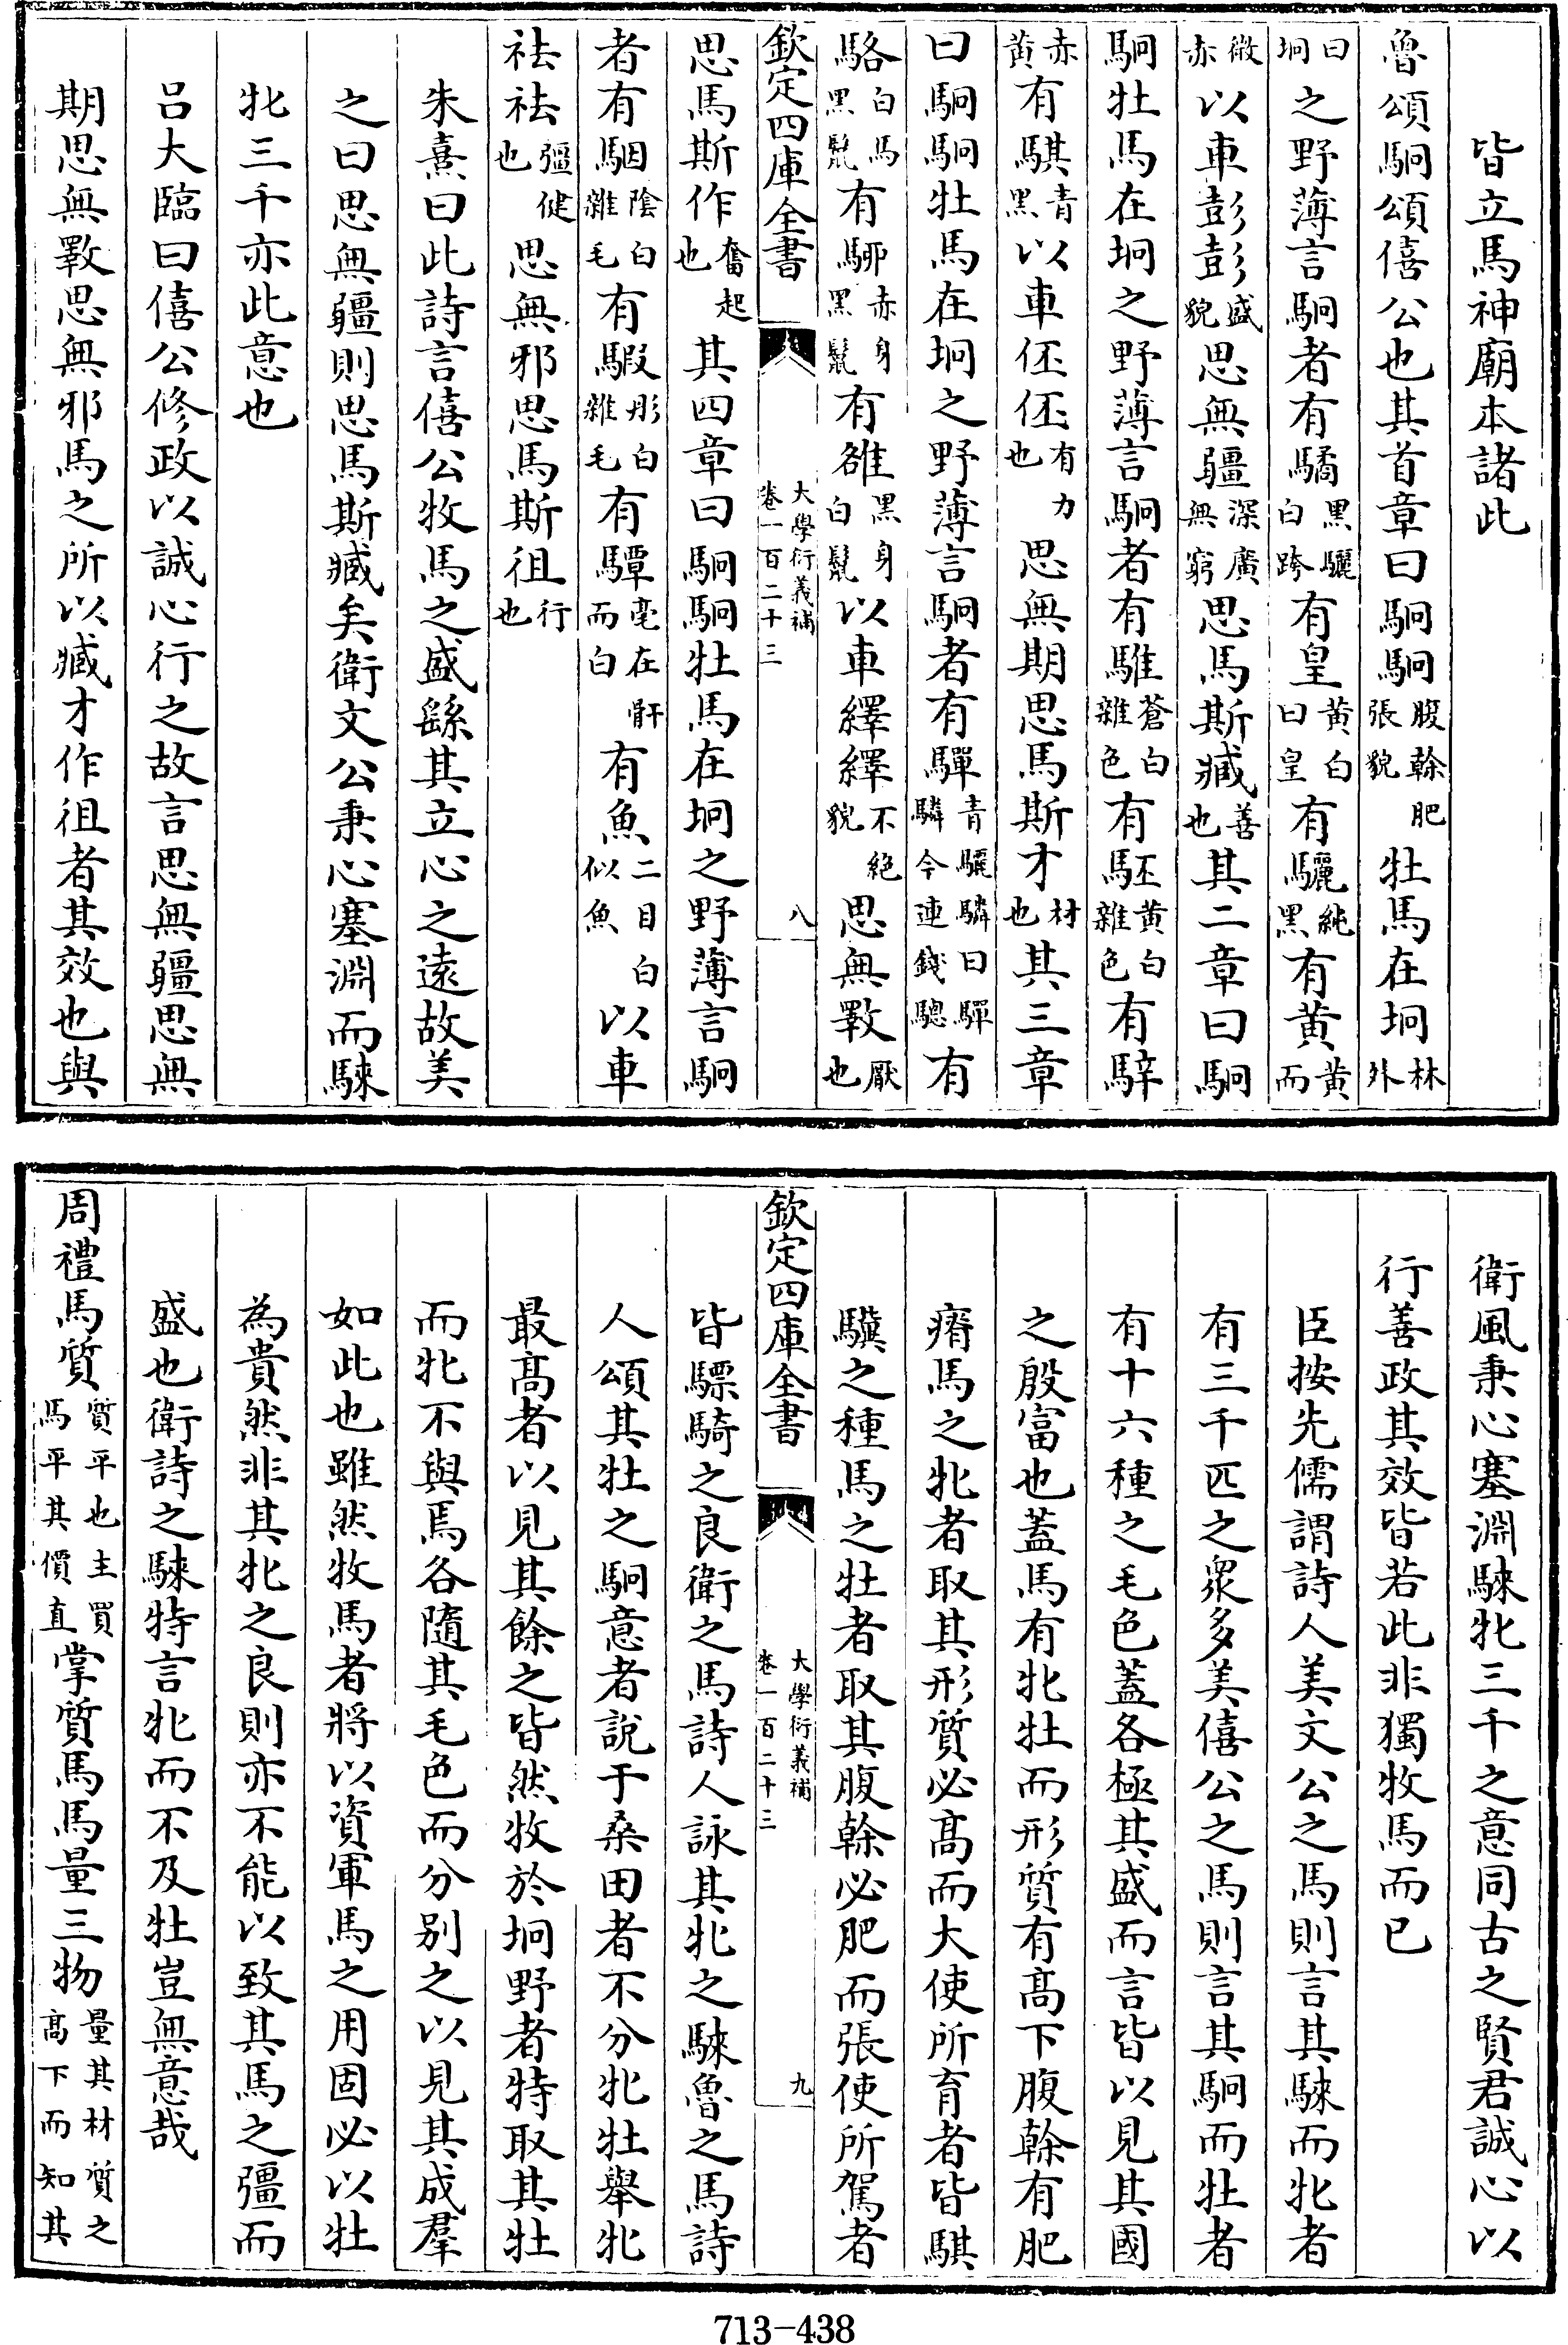 皆立馬神廟本諸此
魯頌駉頌僖公也其首章曰駉駉腹幹肥張貌牡馬在坰林外
曰坰之野薄言駉者有驈黑驪白跨有皇黄白曰皇有驪純黑有黄黄而
微赤以車彭彭盛貌思無疆深廣無窮思馬斯臧善也其二章曰駉
駉牡馬在坰之野薄言駉者有騅蒼白雜色有駓黄白雜色有騂
赤黄有騏青黑以車伾伾有力也思無期思馬斯才材也其三章
曰駉駉牡馬在坰之野薄言駉者有驒青驪驎曰驒驎今連錢驄有
駱白馬黑鬛有駵赤身黑鬛有雒黑身白鬛以車繹繹不絕貌思無斁厭也
欽定四庫全書
大學衍義補
卷一百二十三
八
思馬斯作奮起也其四章曰駉駉牡馬在坰之野薄言駉
者有駰陰白雜毛有騢彤白雜毛有驔毫在骭而白有魚二目白似魚以車
祛祛彊健也思無邪思馬斯徂行也
朱熹曰此詩言僖公牧馬之盛繇其立心之遠故美
之曰思無疆則思馬斯臧矣衛文公秉心塞淵而騋
牝三千亦此意也
吕大臨曰僖公修政以誠心行之故言思無疆思無
期思無斁思無邪馬之所以臧才作徂者其效也與
衛風秉心塞淵騋牝三千之意同古之賢君誠心以
行善政其效皆若此非獨牧馬而已
臣按先儒謂詩人美文公之馬則言其騋而牝者
有三千匹之衆多美僖公之馬則言其駉而牡者
有十六種之毛色蓋各極其盛而言皆以見其國
之殷富也蓋馬有牝牡而形質有髙下腹幹有肥
瘠馬之牝者取其形質必髙而大使所育者皆騏
驥之種馬之牡者取其腹幹必肥而張使所駕者
欽定四庫全書
大學衍義補
卷一百二十三
九
皆驃騎之良衛之馬詩人詠其牝之騋魯之馬詩
人頌其牡之駉意者說于桑田者不分牝牡舉牝
最髙者以見其餘之皆然牧於坰野者特取其牡
而牝不與焉各隨其毛色而分别之以見其成羣
如此也雖然牧馬者將以資軍馬之用固必以牡
為貴然非其牝之良則亦不能以致其馬之彊而
盛也衛詩之騋特言牝而不及牡豈無意哉
周禮馬質質平也主買馬平其價直掌質馬馬量三物量其材質之髙下而知其
713-438